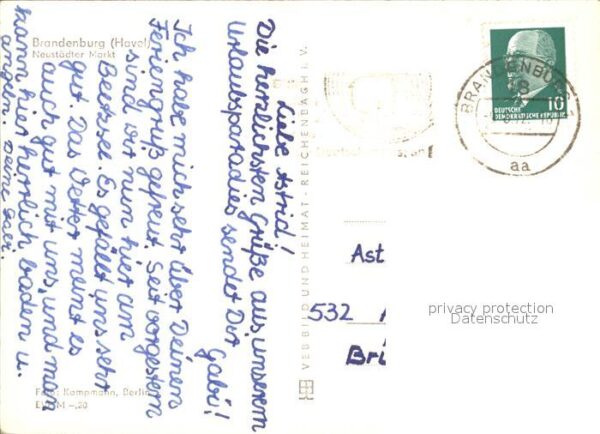 Brandenburg (Havel)
Neustädter Markt
Liebe Astrid!
Die herrlichsten Grüße aus unserem
Urlaubsparadies sendet Dir
Gabi!
Ich habe mich sehr über Deinens
Feriengruß gefreut. Seit vorgestern
sind wir nun hier am
Beetzsee. Es gefällt uns sehr
gut. Das Wetter meint es
auch gut mit uns, und man
kann hier herrlich baden u.
angeln. Deine
Foto: Kampmann, Berlin
VEB BILD UND HEIMAT - REICHENBACH I. V.
BRANDENBURG
aa
10
DEUTSCHE
DEMOKRATISCHE REPUBLIK
Ast
532
Bri
privacy protection
Datenschutz